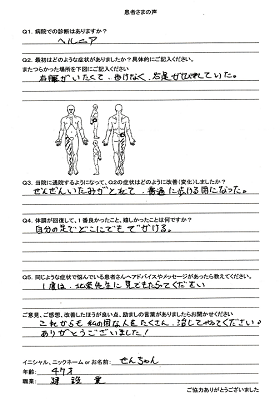 患者さまの声
Q1. 病院での診断はありますか?
ヘルニア
Q2. 最初はどのような症状がありましたか?具体的にご記入ください。
またつらかった場所を下図にご記入ください
右腰がいたくて、歩けなく、右足がしびれていた。
Q3. 当院に通院するようになって、Q2の症状はどのように改善(変化)しましたか?
ぜんぜんいたみがとれて、普通に歩ける用になった。
Q4. 体調が回復して、1番良かったこと、嬉しかったことは何ですか?
自分の足でどこにでもでがける。
Q5. 同じような症状で悩んでいる患者さんへアドバイスやメッセージがあったら教えてください。
1度は、先生に見てもらってください
ご意見、ご感想、改善したほうが良い点、励ましの言葉がありましたらお聞かせください
これからも私の用な人をたくさん、治してやってください。
ありがとうございました!
イニシャル、ニックネーム or お名前: せんちゃん
年齢: 47才
職業: 建設業
ご協力ありがとうございました